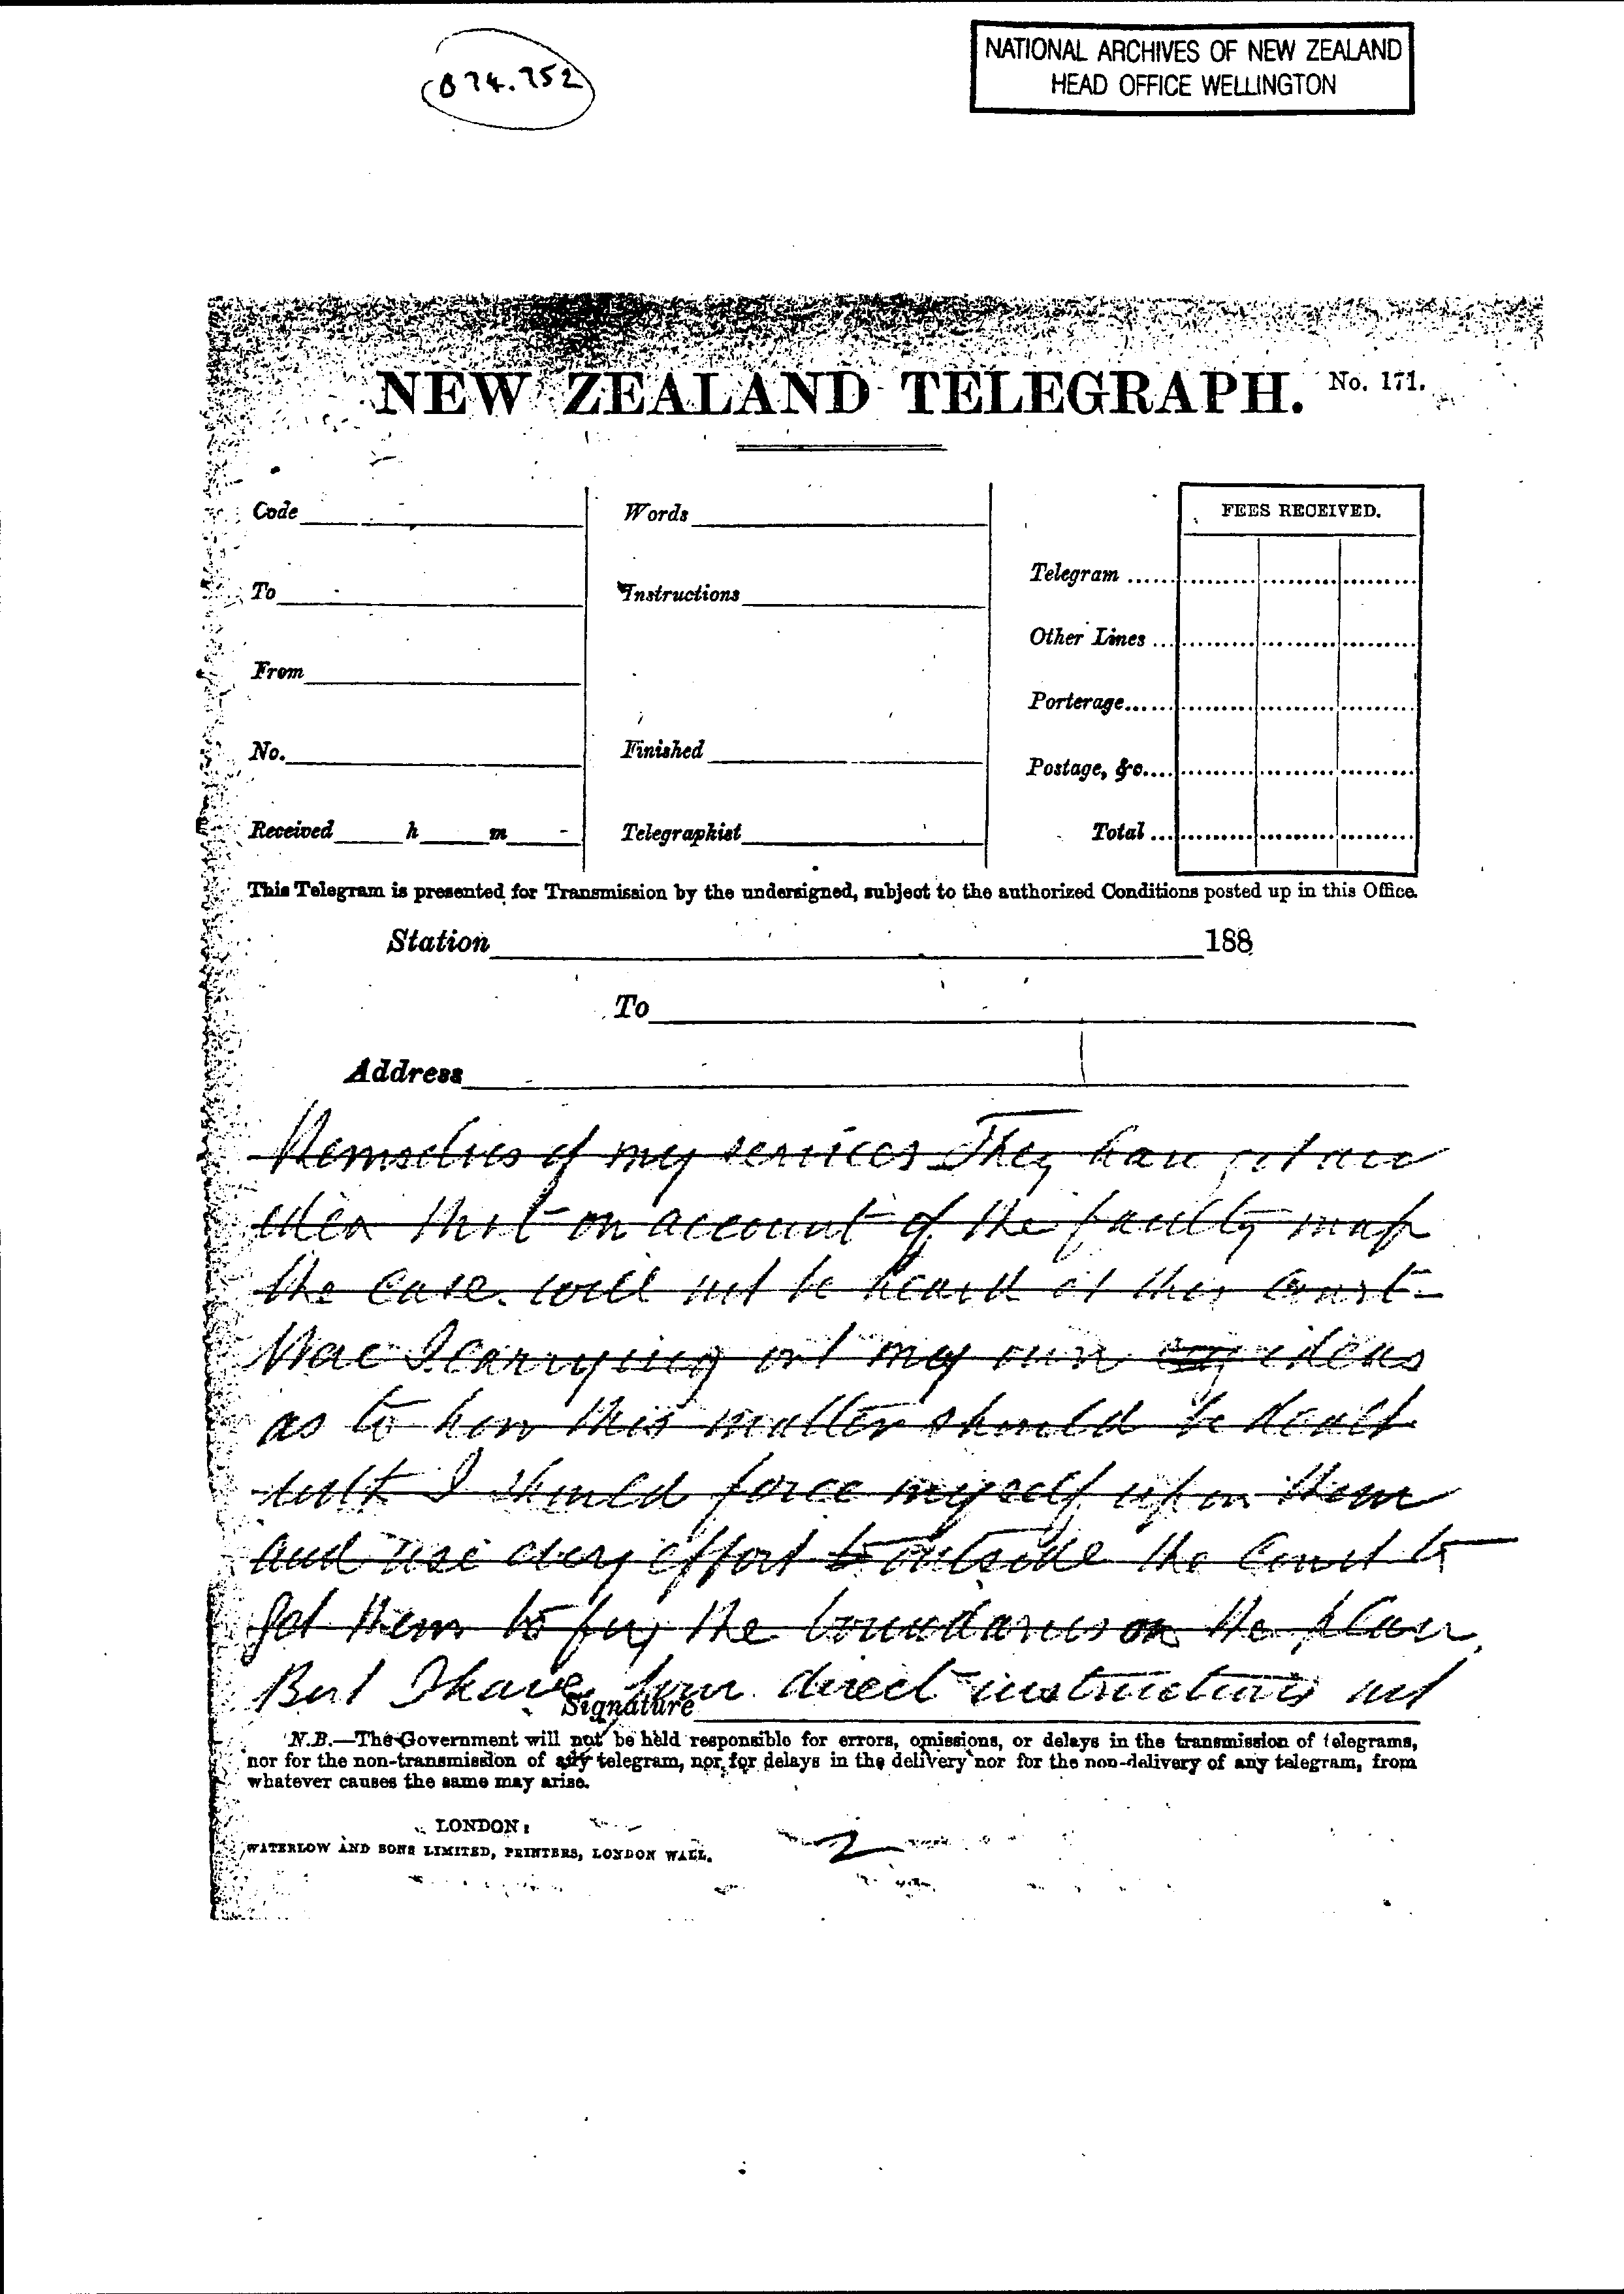 074.752
NATIONAL ARCHIVES OF NEW ZEALAND
HEAD OFFICE WELLINGTON
NEW ZEALAND TELEGRAPH. No. 171.
Code
Words
FEES RECEIVED.
Telegram
To
Instructions
Other Lines
From
Porterage
No.
Finished
Postage, &c.
Received h m
Telegraphist
Total
This Telegram is presented for Transmission by the undersigned, subject to the authorized Conditions posted up in this Office.
Station 188
To
Address
themselves of my services They have got an
idea that on account of the faulty map
the case will not be heard at this Court
Was I carrying out my own ideas
as to how this matter should be dealt
with I should force myself upon them
and use every effort to outside the Court to
get them to fix the boundaries on the plan.
But I have your direct instructions not
Signature
N.B.—The Government will not be held responsible for errors, omissions, or delays in the transmission of telegrams,
nor for the non-transmission of any telegram, nor for delays in the delivery nor for the non-delivery of any telegram, from
whatever causes the same may arise.
LONDON:
WATERLOW AND SONS LIMITED, PRINTERS, LONDON WALL.
2